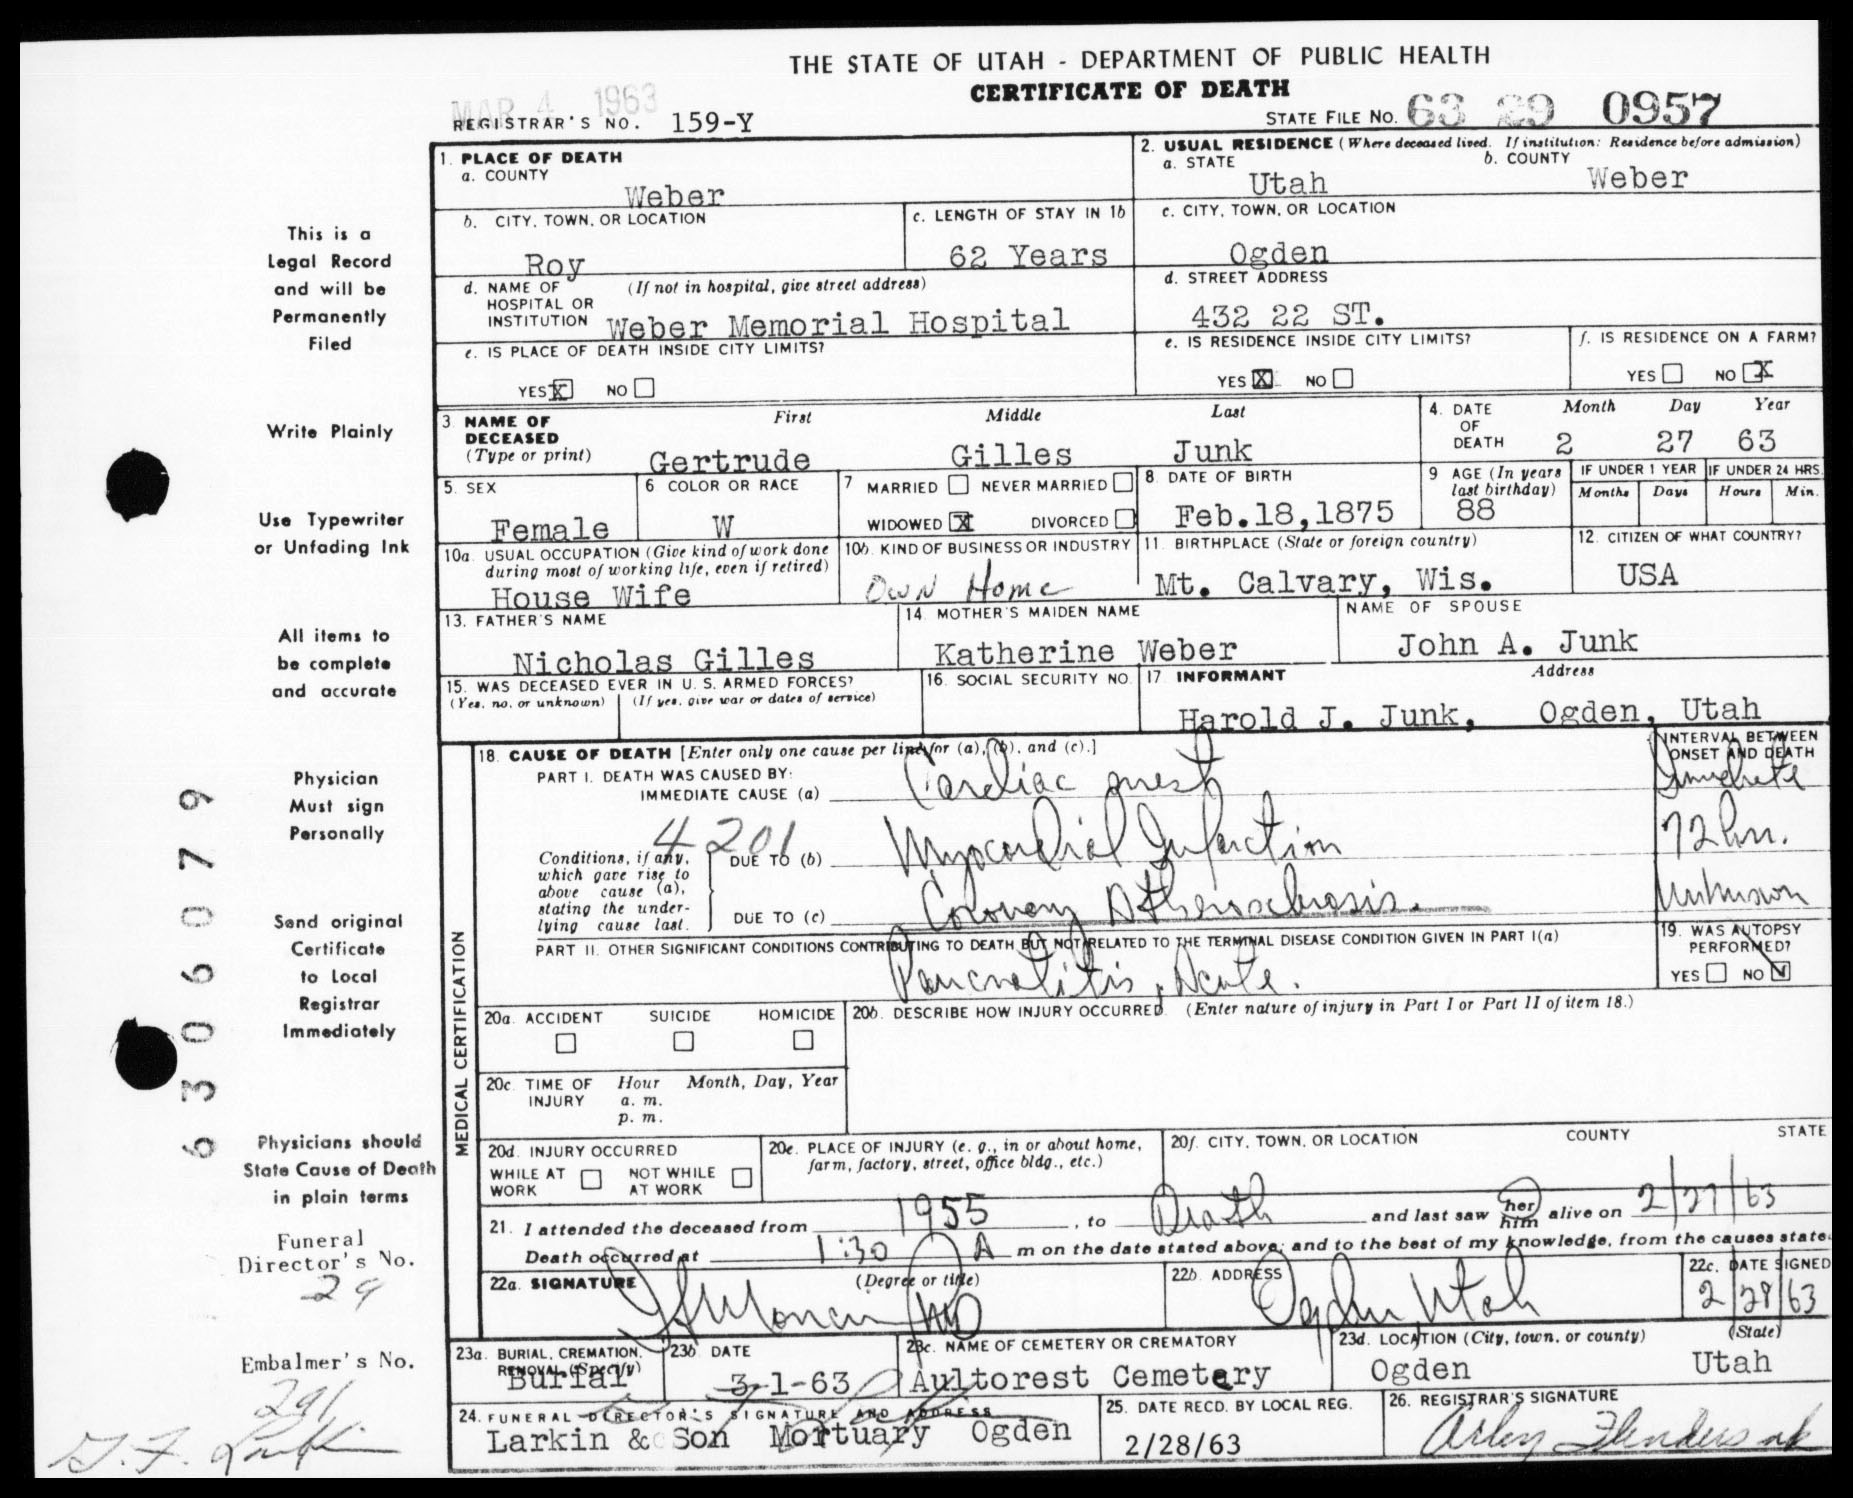 THE STATE OF UTAH - DEPARTMENT OF PUBLIC HEALTH
CERTIFICATE OF DEATH
MAR 4 1963
REGISTRAR'S NO. 159-Y
STATE FILE NO. 63 29 0957
1. PLACE OF DEATH
a. COUNTY
Weber
2. USUAL RESIDENCE (Where deceased lived. If institution: Residence before admission)
a. STATE
Utah
b. COUNTY
Weber
b. CITY, TOWN, OR LOCATION
Roy
c. LENGTH OF STAY IN 1b
62 Years
c. CITY, TOWN, OR LOCATION
Ogden
d. NAME OF HOSPITAL OR INSTITUTION
(If not in hospital, give street address)
Weber Memorial Hospital
d. STREET ADDRESS
432 22 ST.
e. IS PLACE OF DEATH INSIDE CITY LIMITS?
YES X NO
e. IS RESIDENCE INSIDE CITY LIMITS?
YES X NO
f. IS RESIDENCE ON A FARM?
YES NO X
3 NAME OF DECEASED
(Type or print)
First Middle Last
Gertrude Gilles Junk
4. DATE OF DEATH
Month Day Year
2 27 63
5. SEX
Female
6 COLOR OR RACE
W
7 MARRIED NEVER MARRIED
WIDOWED X DIVORCED
8. DATE OF BIRTH
Feb.18,1875
9 AGE (In years last birthday)
88
IF UNDER 1 YEAR
Months Days
IF UNDER 24 HRS.
Hours Min.
10a. USUAL OCCUPATION (Give kind of work done during most of working life, even if retired)
House Wife
10b. KIND OF BUSINESS OR INDUSTRY
Own Home
11. BIRTHPLACE (State or foreign country)
Mt. Calvary, Wis.
12. CITIZEN OF WHAT COUNTRY?
USA
13. FATHER'S NAME
Nicholas Gilles
14. MOTHER'S MAIDEN NAME
Katherine Weber
NAME OF SPOUSE
John A. Junk
15. WAS DECEASED EVER IN U. S. ARMED FORCES?
(Yes, no, or unknown) (If yes, give war or dates of service)
16. SOCIAL SECURITY NO.
17. INFORMANT Address
Harold J. Junk, Ogden, Utah
MEDICAL CERTIFICATION
18. CAUSE OF DEATH [Enter only one cause per line for (a), (b), and (c).]
INTERVAL BETWEEN ONSET AND DEATH
PART I. DEATH WAS CAUSED BY:
IMMEDIATE CAUSE (a) Cardiac arrest
4201
Conditions, if any, which gave rise to above cause (a), stating the underlying cause last.
DUE TO (b) Myocardial Infarction 72 hrs.
DUE TO (c) Coronary Atherosclerosis. Unknown
PART II. OTHER SIGNIFICANT CONDITIONS CONTRIBUTING TO DEATH BUT NOT RELATED TO THE TERMINAL DISEASE CONDITION GIVEN IN PART I(a)
Pancreatitis, Acute.
19. WAS AUTOPSY PERFORMED?
YES NO
20a. ACCIDENT SUICIDE HOMICIDE
20b. DESCRIBE HOW INJURY OCCURRED. (Enter nature of injury in Part I or Part II of item 18.)
20c. TIME OF INJURY
Hour Month, Day, Year
a. m.
p. m.
20d. INJURY OCCURRED
WHILE AT WORK NOT WHILE AT WORK
20e. PLACE OF INJURY (e. g., in or about home, farm, factory, street, office bldg., etc.)
20f. CITY, TOWN, OR LOCATION COUNTY STATE
21. I attended the deceased from 1955, to Death and last saw her him alive on 2/27/63
Death occurred at 1:30 A m on the date stated above; and to the best of my knowledge, from the causes state
22a. SIGNATURE (Degree or title)
MD
22b. ADDRESS
Ogden Utah
22c. DATE SIGNED
2/28/63
23a. BURIAL, CREMATION, REMOVAL (Specify)
Burial
23b DATE
3-1-63
23c. NAME OF CEMETERY OR CREMATORY
Aultorest Cemetery
23d. LOCATION (City, town, or county) (State)
Ogden Utah
24. FUNERAL DIRECTOR'S SIGNATURE AND ADDRESS
Larkin & Son Mortuary Ogden
25. DATE RECD. BY LOCAL REG.
2/28/63
26. REGISTRAR'S SIGNATURE
This is a
Legal Record
and will be
Permanently
Filed
Write Plainly
Use Typewriter
or Unfading Ink
All items to
be complete
and accurate
Physician
Must sign
Personally
Send original
Certificate
to Local
Registrar
Immediately
Physicians should
State Cause of Death
in plain terms
Funeral
Director's No.
29
Embalmer's No.
291
G. F. Larkin
6306079